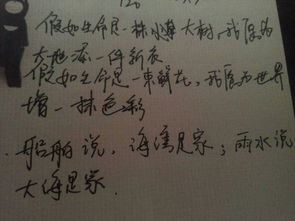 假如生命是一株小草大树，我愿为
大地添一件新衣
假如生命是一束鲜花，我愿为世界
增一抹色彩
船舶说，海湾是家；雨水说
大海是家.